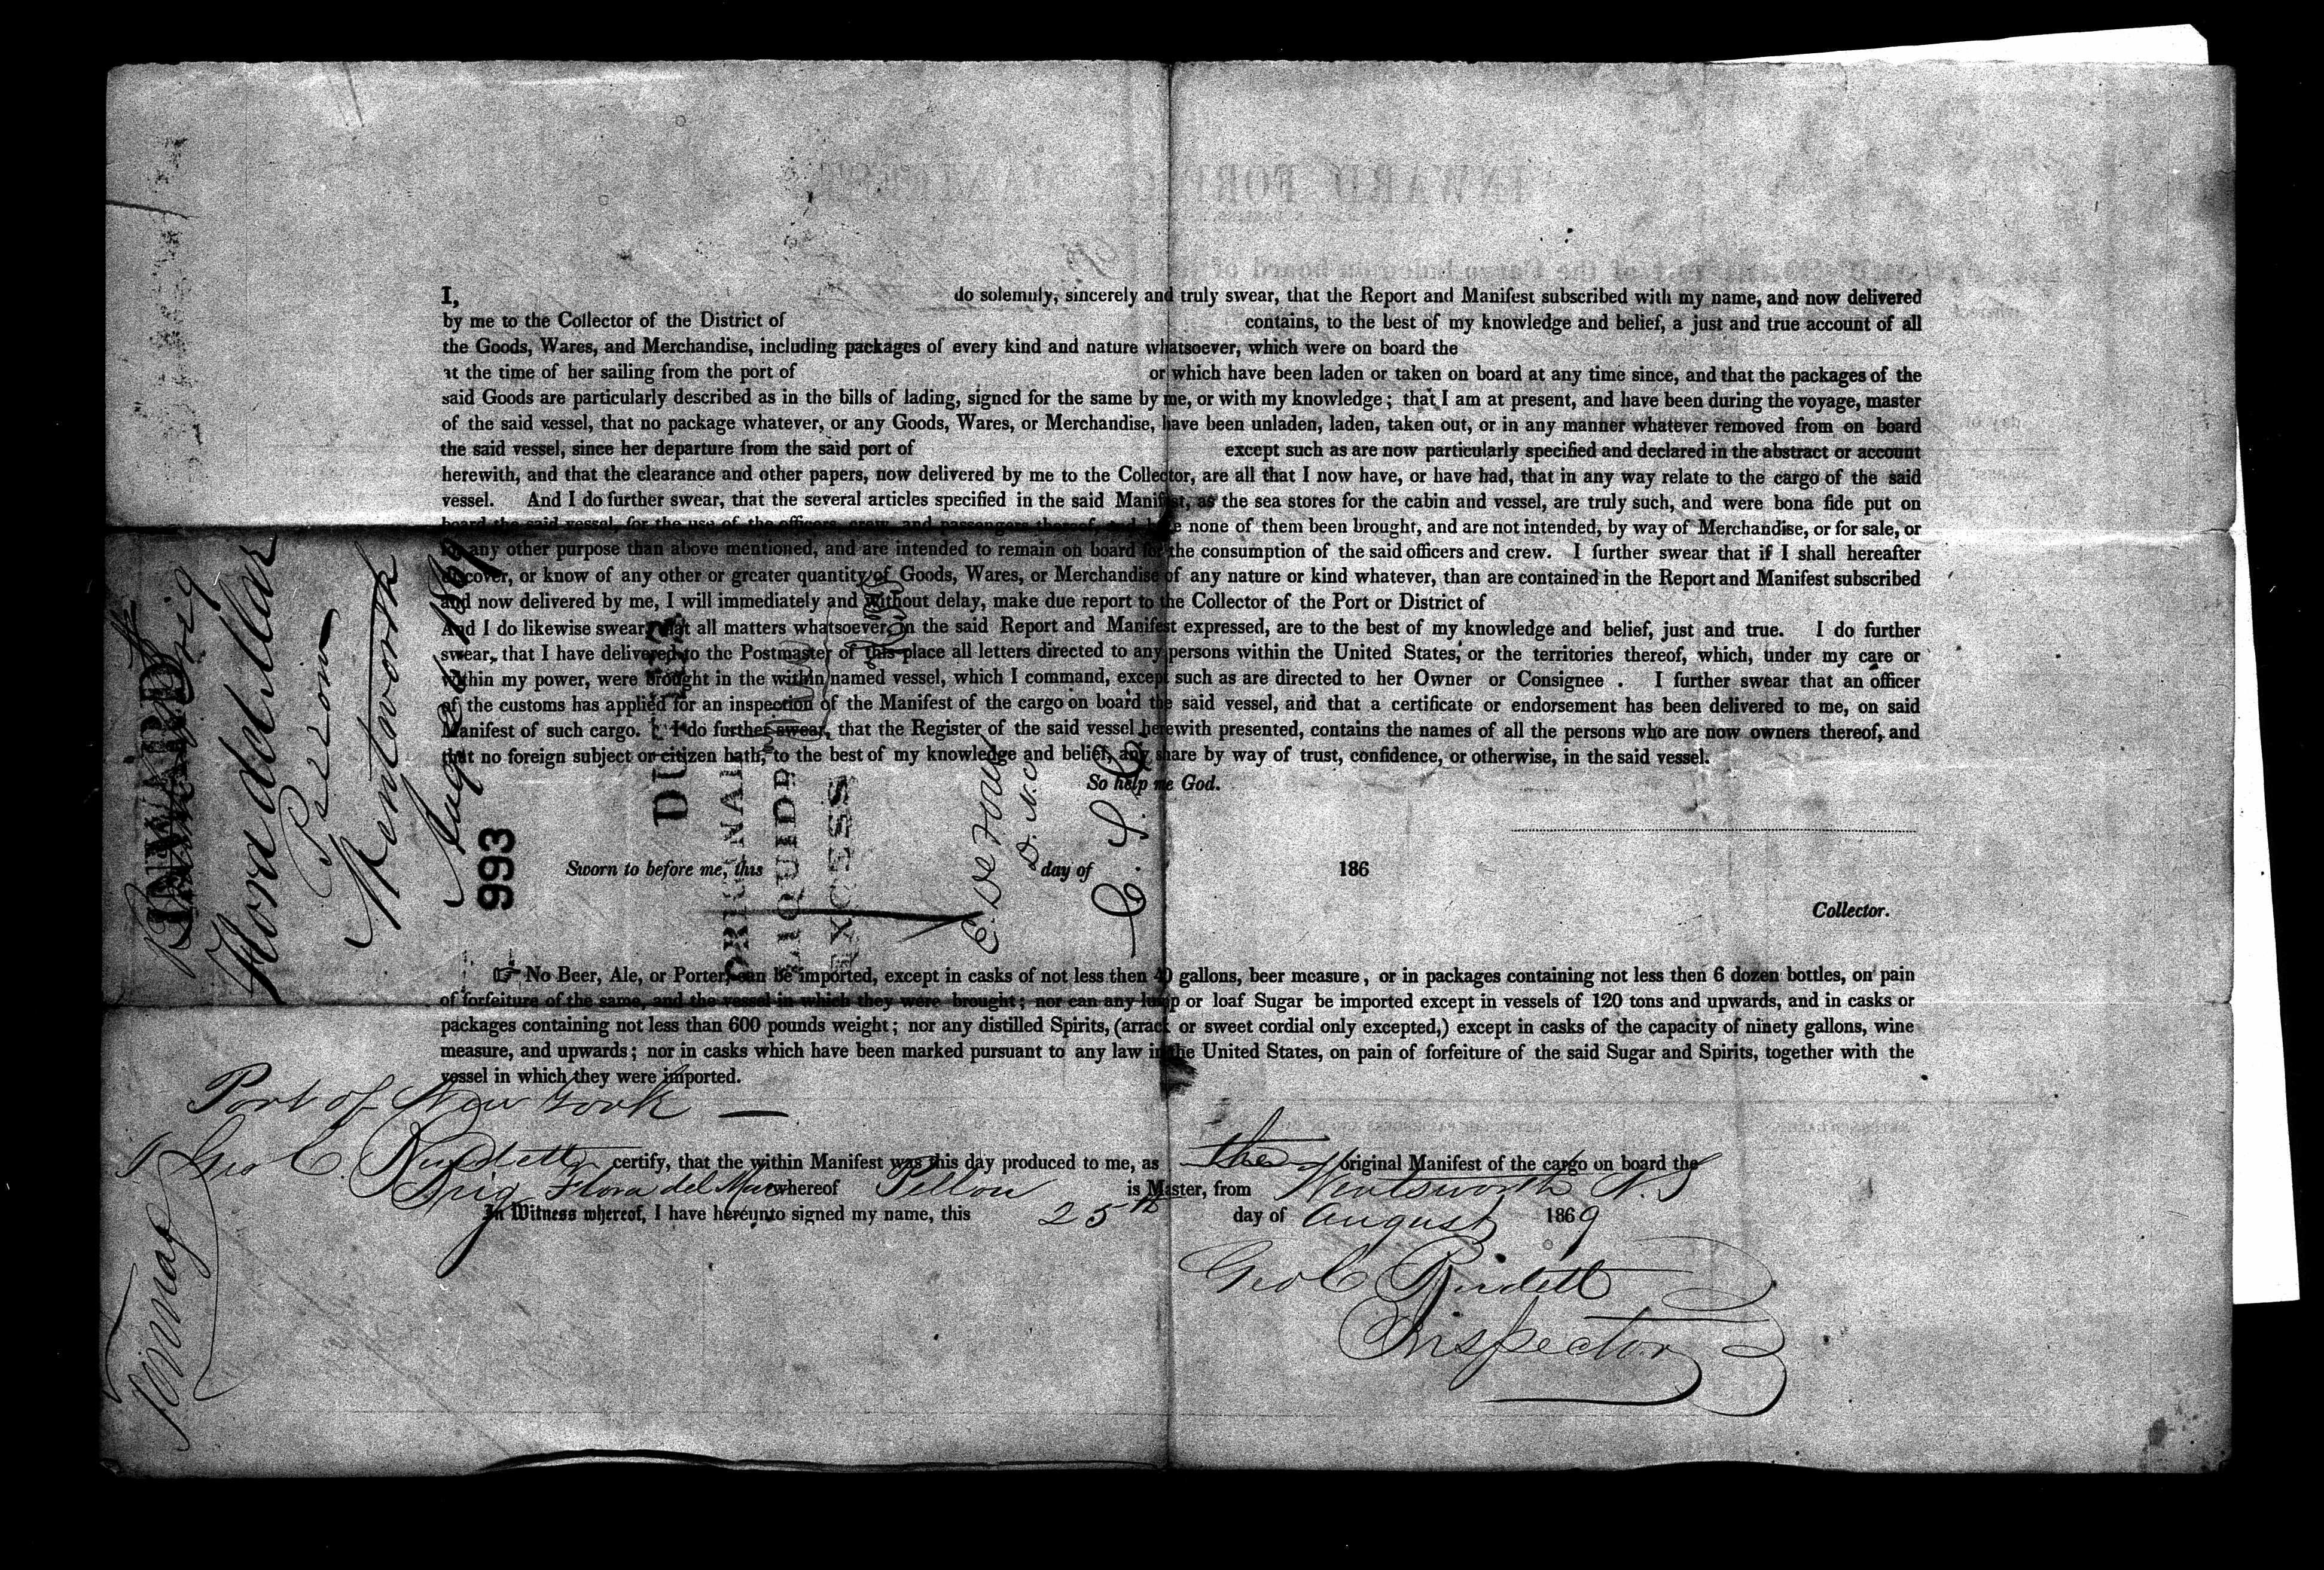 I, do solemnly, sincerely and truly swear, that the Report and Manifest subscribed with my name, and now delivered
by me to the Collector of the District of contains, to the best of my knowledge and belief, a just and true account of all
the Goods, Wares, and Merchandise, including packages of every kind and nature whatsoever, which were on board the
at the time of her sailing from the port of or which have been laden or taken on board at any time since, and that the packages of the
said Goods are particularly described as in the bills of lading, signed for the same by me, or with my knowledge; that I am at present, and have been during the voyage, master
of the said vessel, that no package whatever, or any Goods, Wares, or Merchandise, have been unladen, laden, taken out, or in any manner whatever removed from on board
the said vessel, since her departure from the said port of except such as are now particularly specified and declared in the abstract or account
herewith, and that the clearance and other papers, now delivered by me to the Collector, are all that I now have, or have had, that in any way relate to the cargo of the said
vessel. And I do further swear, that the several articles specified in the said Manifest, as the sea stores for the cabin and vessel, are truly such, and were bona fide put on
board the said vessel, for the use of the officers, crew, and passengers thereof, and have none of them been brought, and are not intended, by way of Merchandise, or for sale, or
for any other purpose than above mentioned, and are intended to remain on board for the consumption of the said officers and crew. I further swear that if I shall hereafter
discover, or know of any other or greater quantity of Goods, Wares, or Merchandise of any nature or kind whatever, than are contained in the Report and Manifest subscribed
and now delivered by me, I will immediately and without delay, make due report to the Collector of the Port or District of
And I do likewise swear, that all matters whatsoever in the said Report and Manifest expressed, are to the best of my knowledge and belief, just and true. I do further
swear, that I have delivered to the Postmaster of this place all letters directed to any persons within the United States, or the territories thereof, which, under my care or
within my power, were brought in the within named vessel, which I command, except such as are directed to her Owner or Consignee . I further swear that an officer
of the customs has applied for an inspection of the Manifest of the cargo on board the said vessel, and that a certificate or endorsement has been delivered to me, on said
Manifest of such cargo. I do further swear, that the Register of the said vessel herewith presented, contains the names of all the persons who are now owners thereof, and
that no foreign subject or citizen hath, to the best of my knowledge and belief, any share by way of trust, confidence, or otherwise, in the said vessel.
So help me God.
Sworn to before me, this day of 186
Collector.
☞ No Beer, Ale, or Porter, can be imported, except in casks of not less then 40 gallons, beer measure, or in packages containing not less then 6 dozen bottles, on pain
of forfeiture of the same, and the vessel in which they were brought; nor can any lump or loaf Sugar be imported except in vessels of 120 tons and upwards, and in casks or
packages containing not less than 600 pounds weight; nor any distilled Spirits, (arrack or sweet cordial only excepted,) except in casks of the capacity of ninety gallons, wine
measure, and upwards; nor in casks which have been marked pursuant to any law in the United States, on pain of forfeiture of the said Sugar and Spirits, together with the
vessel in which they were imported.
Port of New York
I Geo C. Burdett certify, that the within Manifest was this day produced to me, as the original Manifest of the cargo on board the
Brig Flora del Mar whereof Pellon is Master, from Wentsworth N.S
In Witness whereof, I have hereunto signed my name, this 25th day of August 1869
Geo C Burdett
Inspector
INWARD
Brig
Flora del Mar
Wentworth
993
ORIGINAL
LIQUID
EXCESS
Tonnage